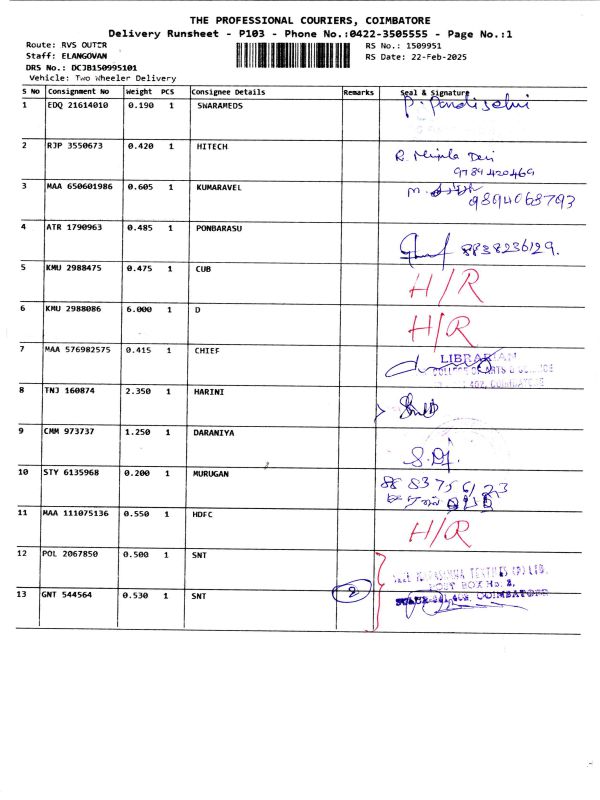 THE PROFESSIONAL COURIERS, COIMBATORE
Delivery Runsheet - P103 - Phone No.:0422-3505555 - Page No.:1
Route: RVS OUTER
RS No.: 1509951
Staff: ELANGOVAN
RS Date: 22-Feb-2025
DRS No.: DCJB150995101
Vehicle: Two Wheeler Delivery
S No Consignment No Weight PCS Consignee Details Remarks Seal & Signature
1 EDQ 21614010 0.190 1 SWARAMEDS P. Pandiselvi
2 RJP 3550673 0.420 1 HITECH R. Devi
9789420469
3 MAA 650601986 0.605 1 KUMARAVEL M.
9894068793
4 ATR 1790963 0.485 1 PONBARASU 8838236129.
5 KMU 2988475 0.475 1 CUB H/R
6 KMU 2988086 6.000 1 D H/R
7 MAA 576982575 0.415 1 CHIEF LIBRARIAN
COLLEGE OF ARTS & SCIENCE
402, COIMBATORE
8 TNJ 160874 2.350 1 HARINI
9 CMM 973737 1.250 1 DARANIYA
10 STY 6135968 0.200 1 MURUGAN
11 MAA 111075136 0.550 1 HDFC H/R
12 POL 2067850 0.500 1 SNT
TEXTILES (P) LTD.
POST BOX No. 2,
13 GNT 544564 0.530 1 SNT 2 COIMBATORE